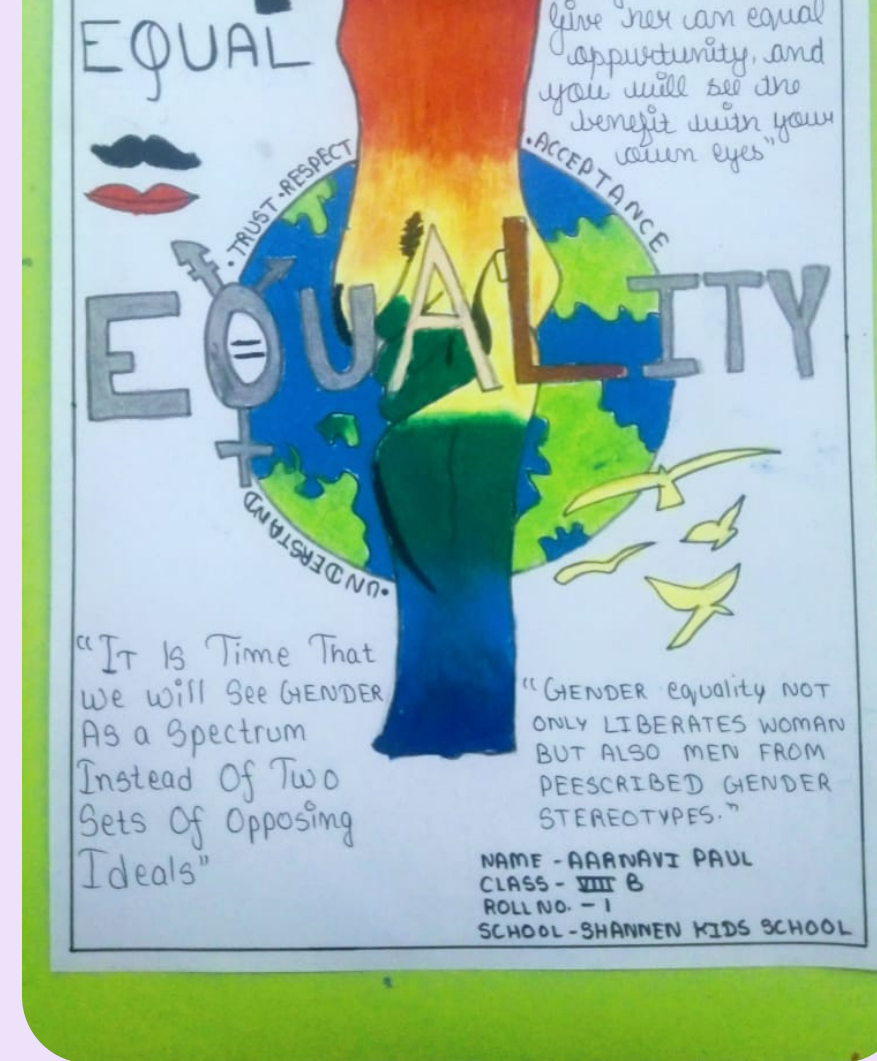 EQUAL
give her an equal
oppurtunity, and
you will see the
benefit with your
own eyes”
.TRUST.RESPECT
.ACCEPTANCE
EQUALITY
.UNDERSTAND
“It Is Time That
we will See GENDER
As a Spectrum
Instead Of Two
Sets Of Opposing
Ideals”
“GENDER equality NOT
ONLY LIBERATES WOMAN
BUT ALSO MEN FROM
PEESCRIBED GENDER
STEREOTYPES.”
NAME - AARNAVI PAUL
CLASS - VIII B
ROLL NO. - 1
SCHOOL - SHANNEN KIDS SCHOOL